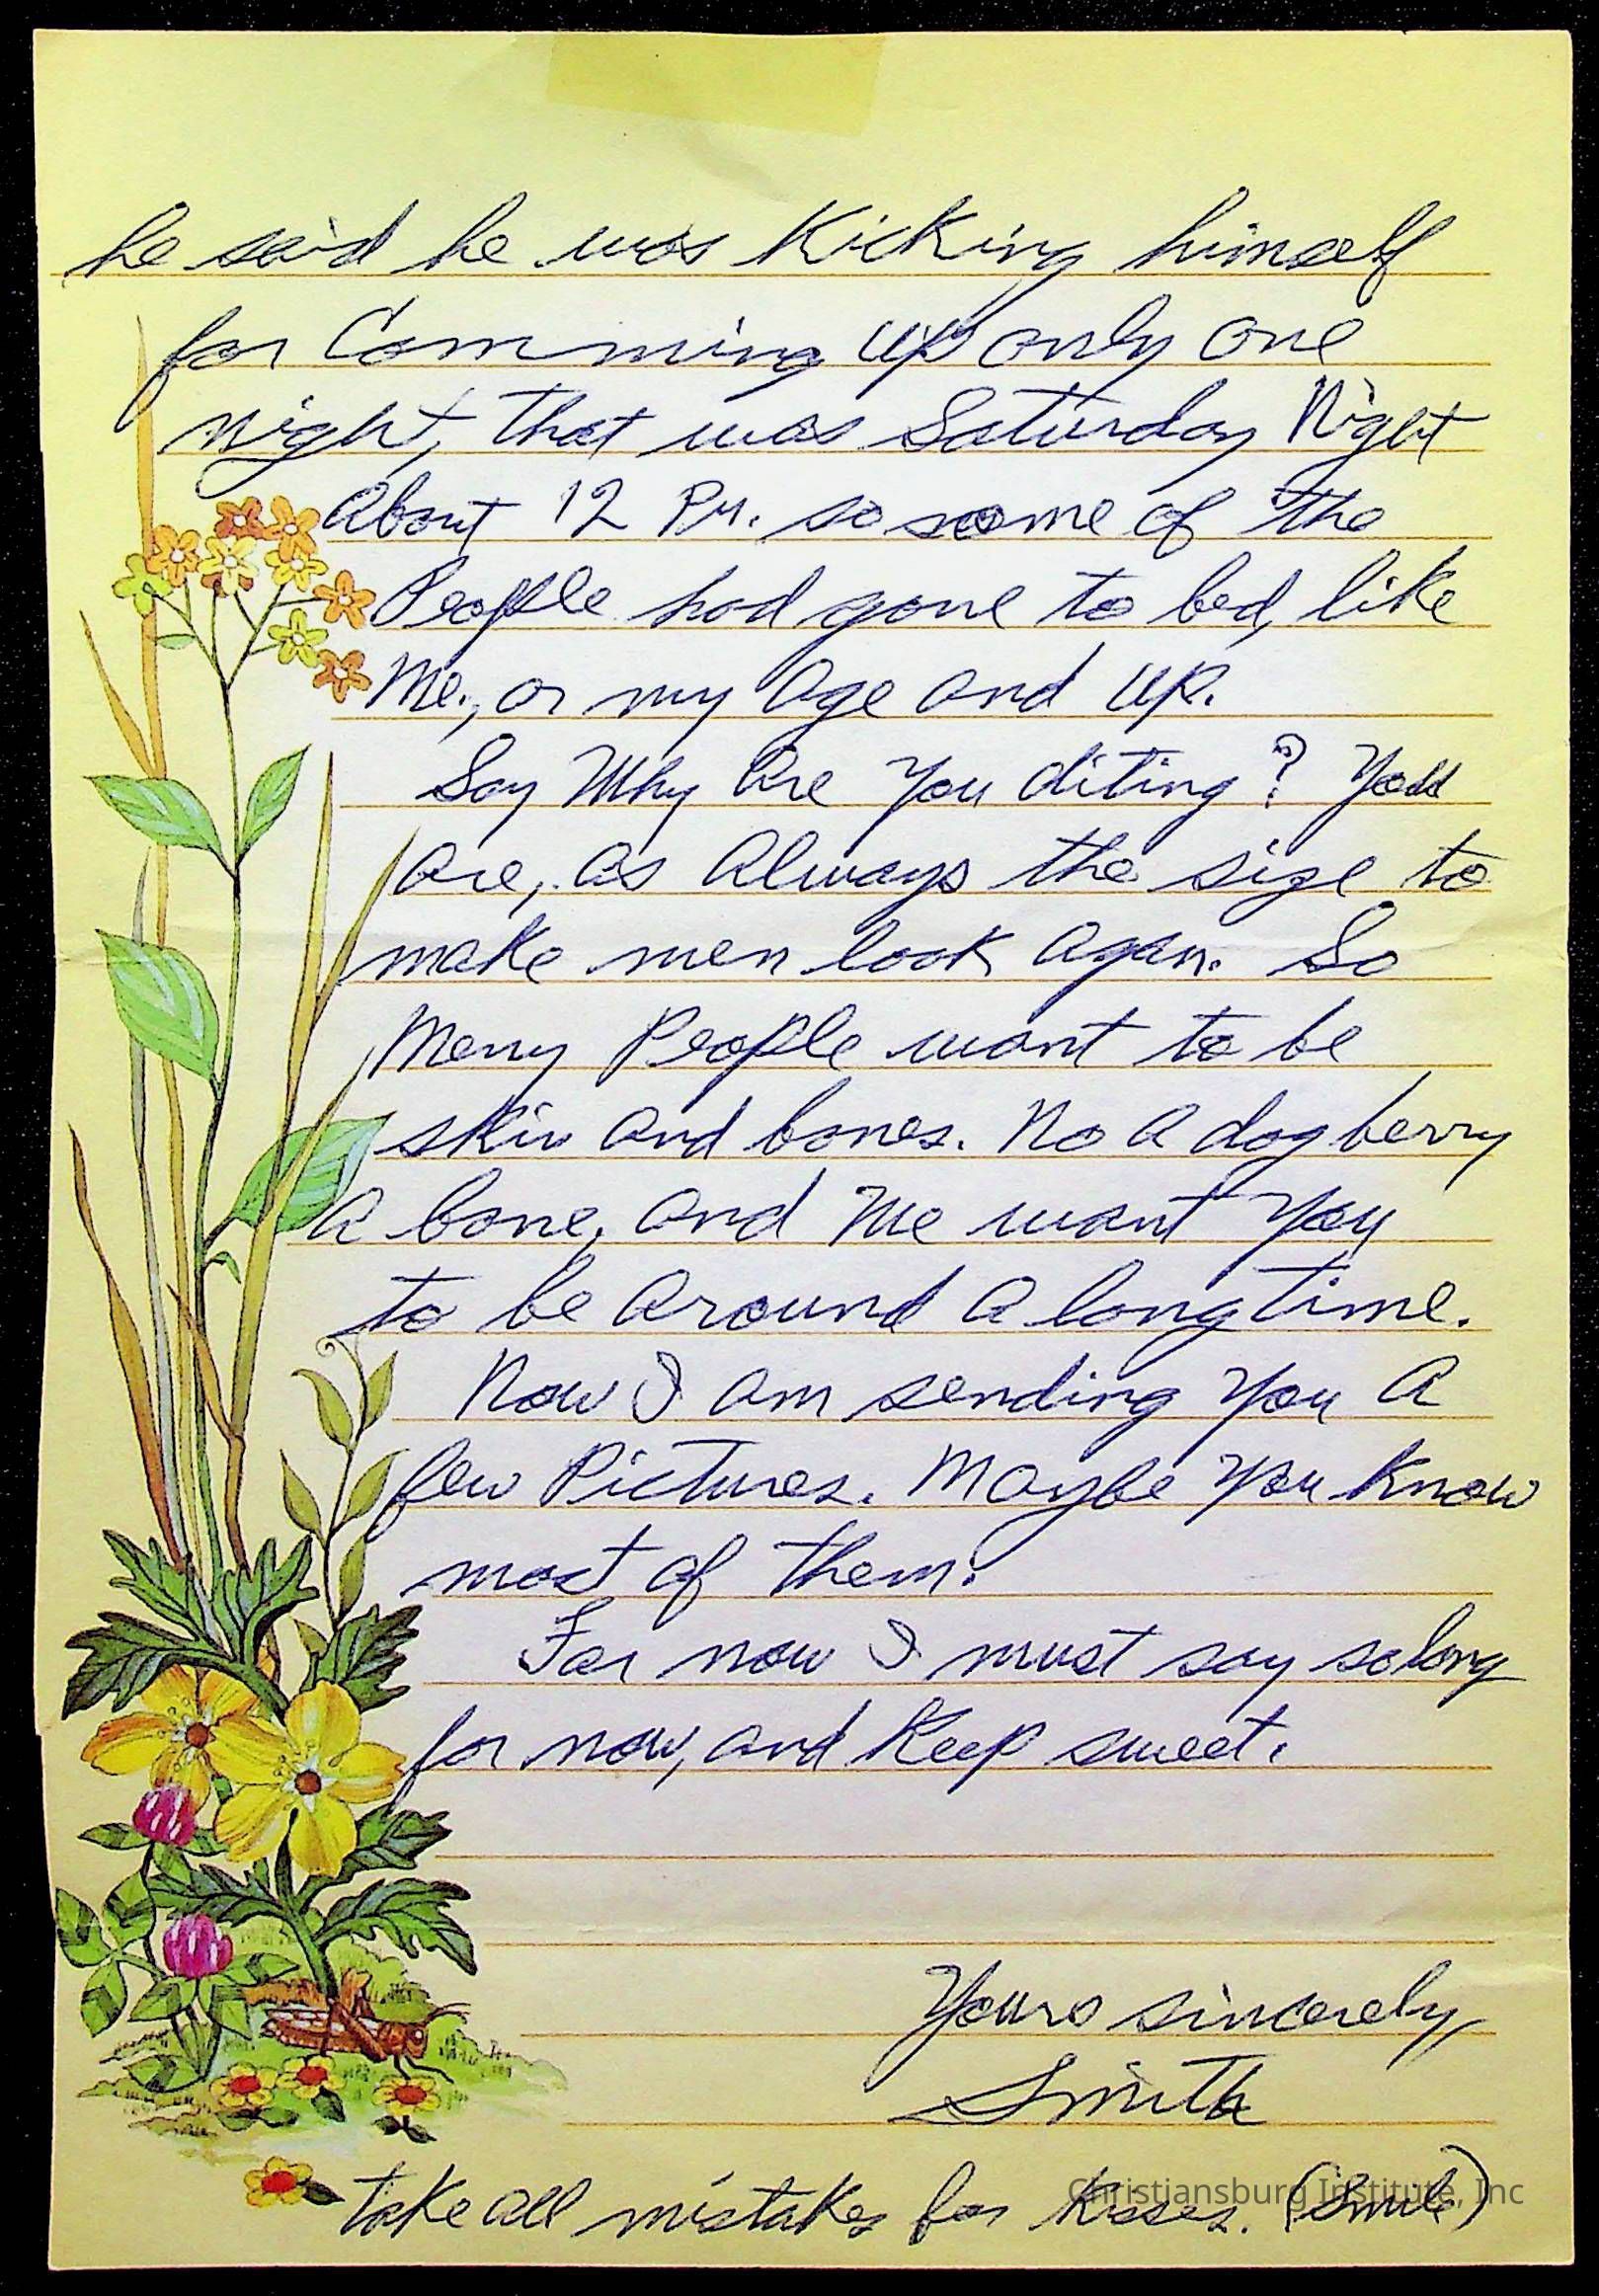 he said he was Kicking himself
for Comming up only one
night, that was Saturday Night
About 12 Pm. so some of the
People had gone to bed, like
Me., or my Age and UP.
Say Why Are You diting? You
Are, as Always the size to
make men look Again. So
Meny People want to be
skin and bones. No A dog berry
A bone, and Me want You
to be Around A long time.
Now I am sending You A
few Pictures. Maybe You Know
most of them.
For now I must say solong
for now, and Keep sweet.
Yours sincerely,
Smith
take all mistakes for kisses. (Smile)
Christiansburg Institute, Inc